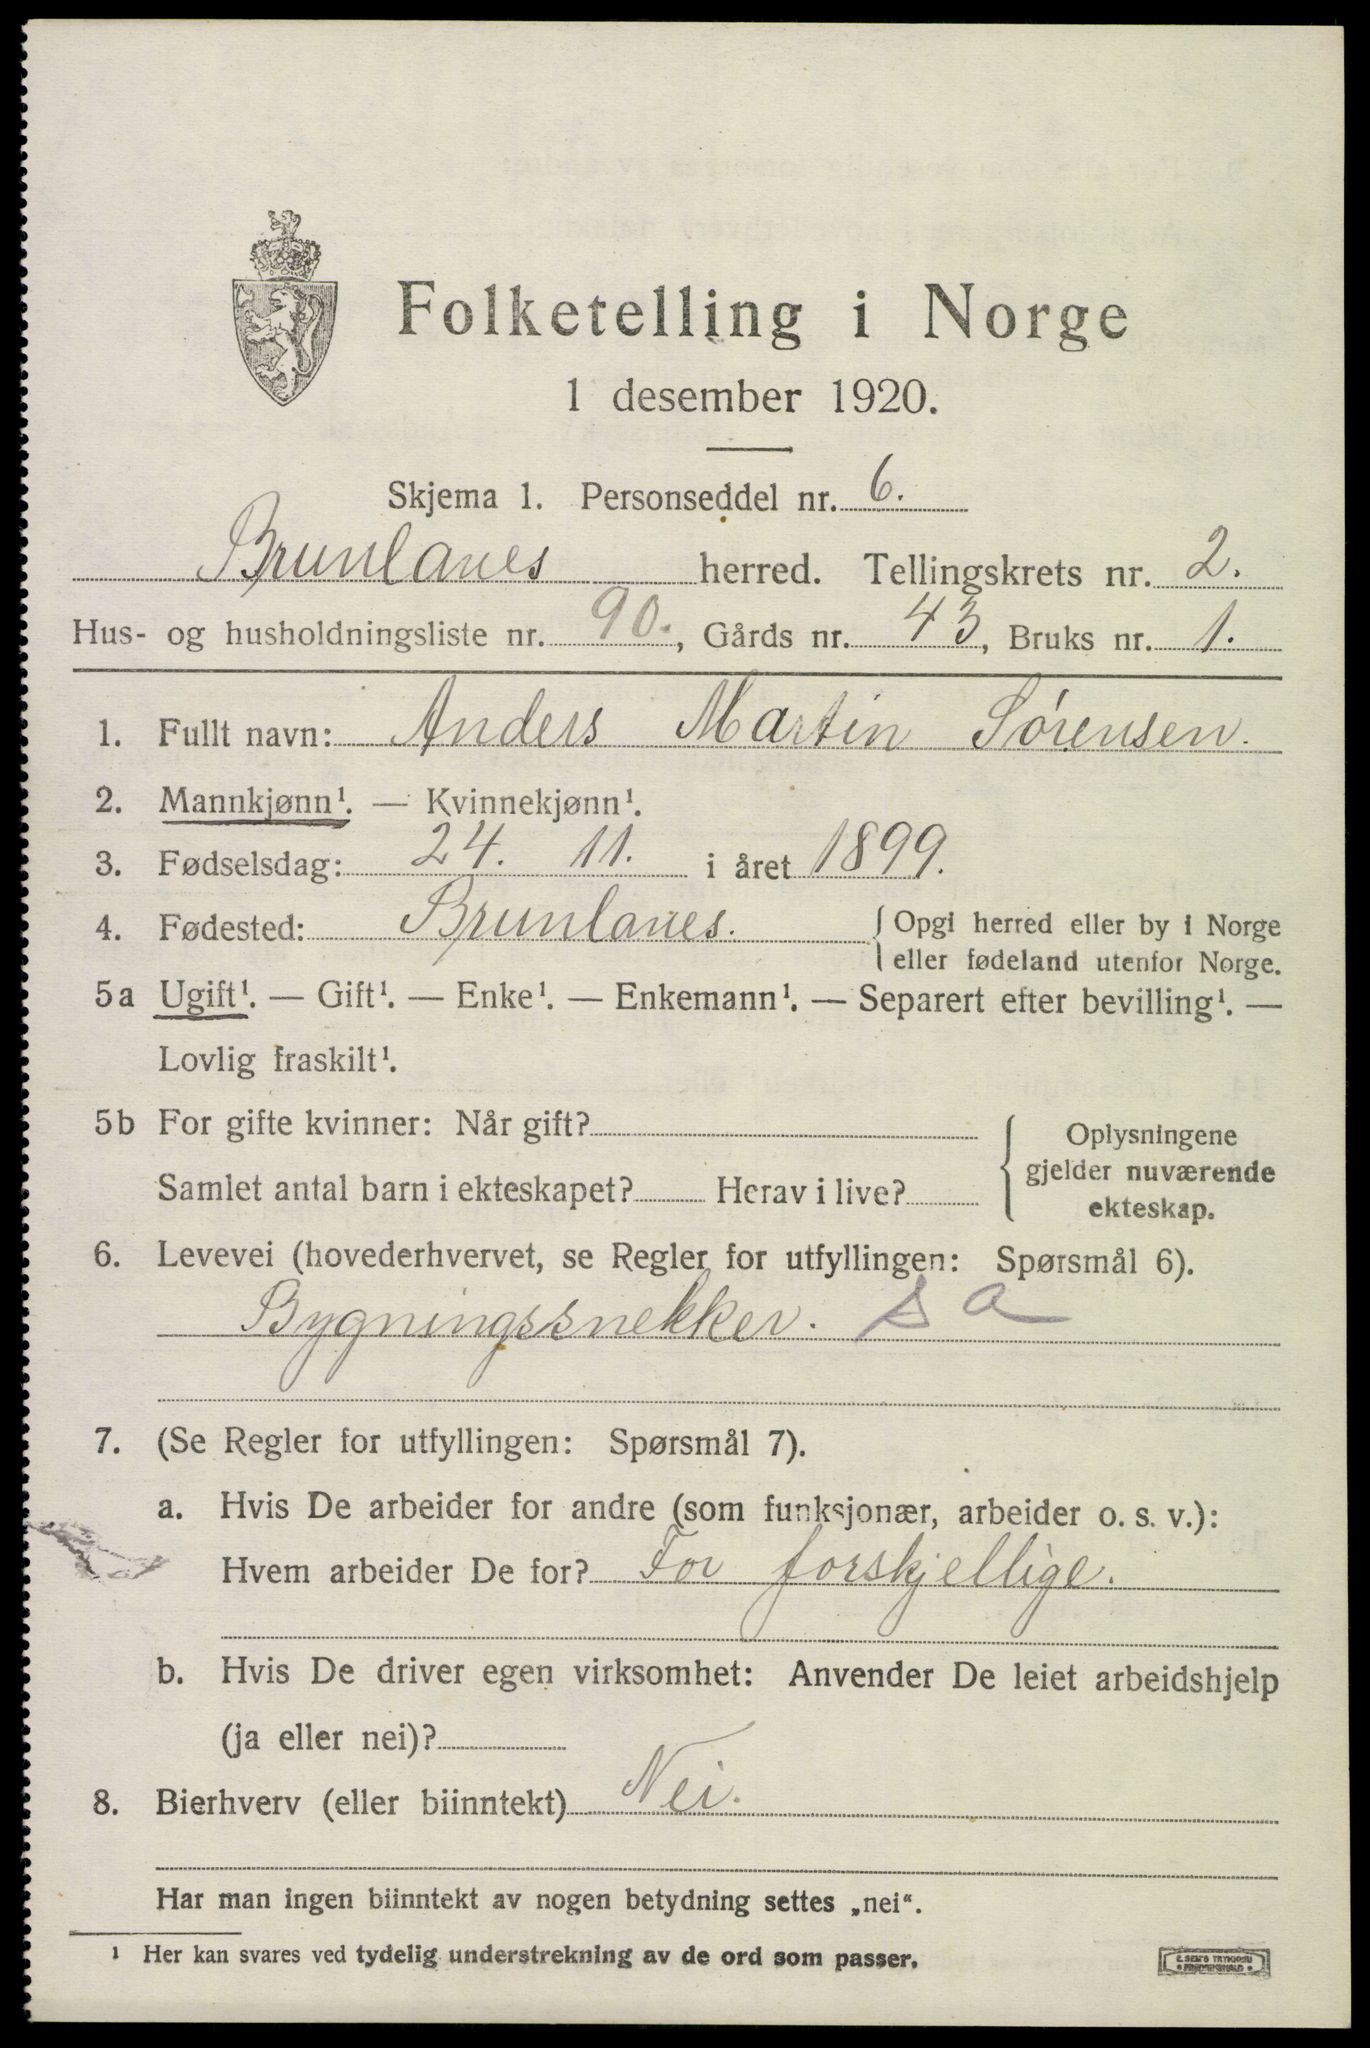 Folketelling i Norge
1 desember 1920.
Skjema 1. Personseddel nr. 6.
Brunlanes herred. Tellingskrets nr. 2.
Hus- og husholdningsliste nr. 90., Gårds nr. 43, Bruks nr. 1.
1. Fullt navn: Anders Martin Sørensen.
2. Mannkjønn¹. — Kvinnekjønn¹.
3. Fødselsdag: 24. 11. i året 1899.
4. Fødested: Brunlanes. { Opgi herred eller by i Norge
eller fødeland utenfor Norge.
5a Ugift¹. — Gift¹. — Enke¹. — Enkemann¹. — Separert efter bevilling¹. —
Lovlig fraskilt¹.
5b For gifte kvinner: Når gift?
Samlet antal barn i ekteskapet? Herav i live?
{ Oplysningene
gjelder nuværende
ekteskap.
6. Levevei (hovederhvervet, se Regler for utfyllingen: Spørsmål 6).
Bygningssnekker. s a
7. (Se Regler for utfyllingen: Spørsmål 7).
a. Hvis De arbeider for andre (som funksjonær, arbeider o. s. v.):
Hvem arbeider De for? For forskjellige.
b. Hvis De driver egen virksomhet: Anvender De leiet arbeidshjelp
(ja eller nei)?
8. Bierhverv (eller biinntekt) Nei.
Har man ingen biinntekt av nogen betydning settes „nei“.
¹ Her kan svares ved tydelig understrekning av de ord som passer.